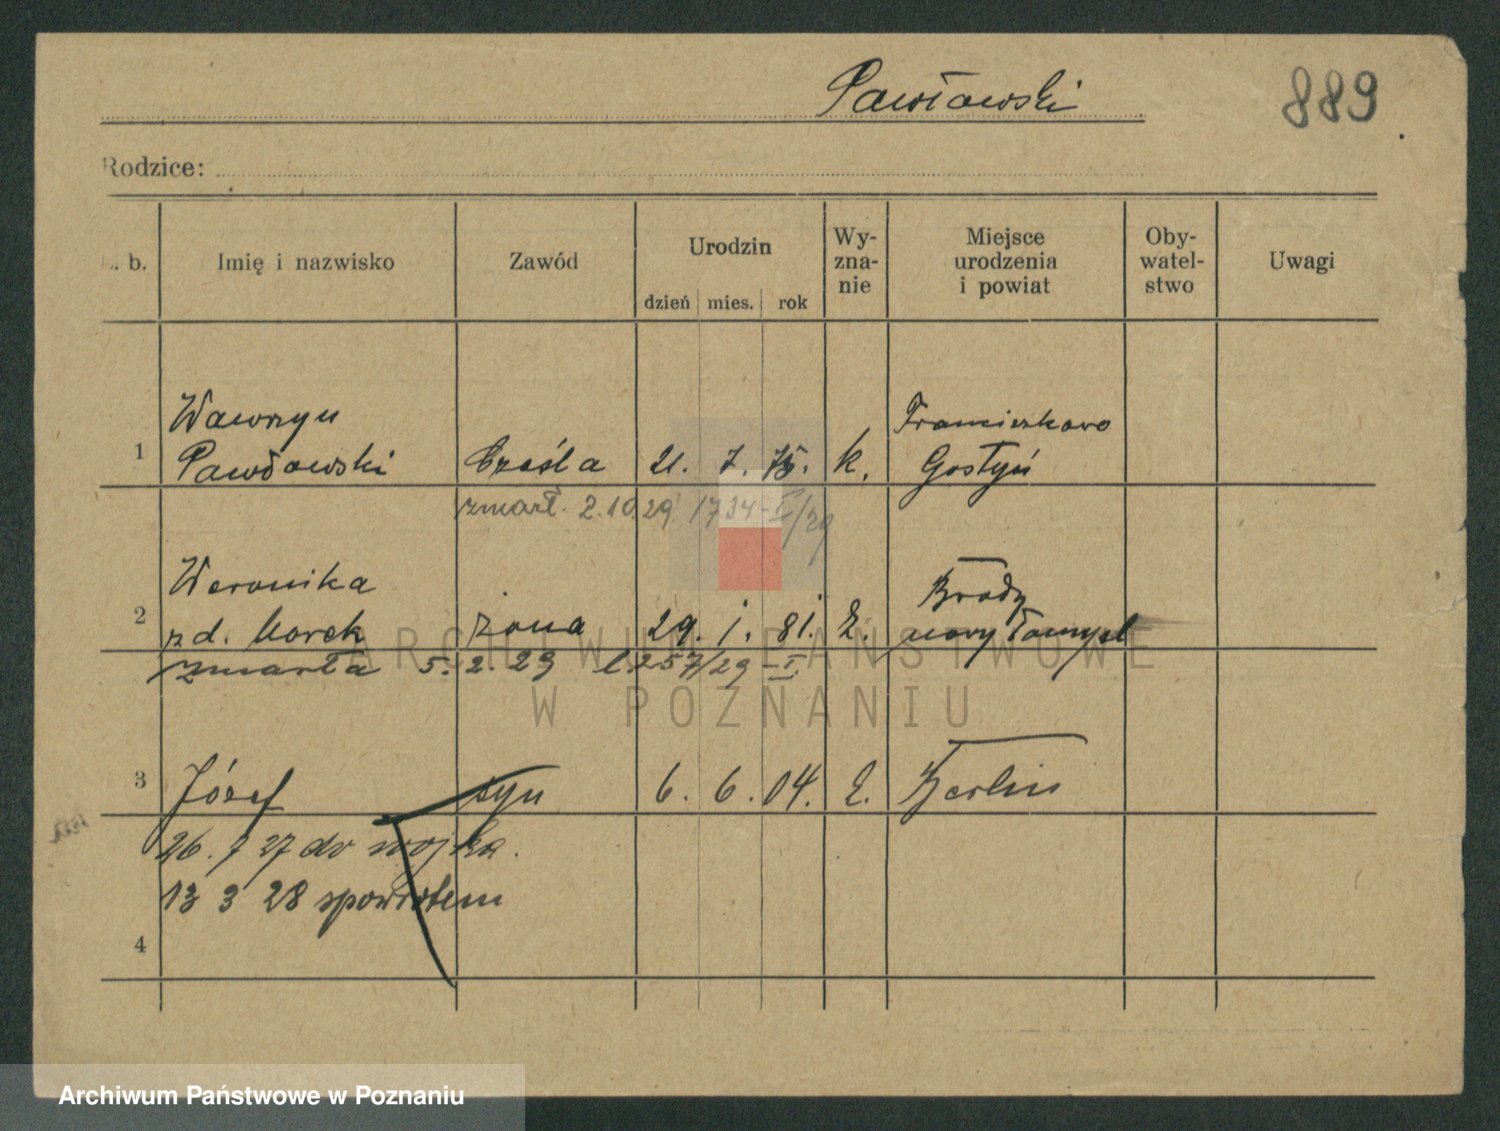 Pawłowski
889
Rodzice:
L. b.
Imię i nazwisko
Zawód
Urodzin
dzień mies. rok
Wy-
zna-
nie
Miejsce
urodzenia
i powiat
Oby-
watel-
stwo
Uwagi
Wawrzyn
Franciszkowo
1 Pawłowski cieśla 21. 7. 75. k. Gostyń
zmarł. 2.10.29 1734-I/29
Weronika
Brody
2 z d. Marek żona 29. 1. 81. k. nowy Tomyśl
zmarła 5. 2. 29 l. 257/29-I.
3 Józef syn 6. 6. 04. k. Berlin
26. 7 27 do wojska.
13 3 28 spowrotem
4
ARCHIWUM PAŃSTWOWE
W POZNANIU
Archiwum Państwowe w Poznaniu